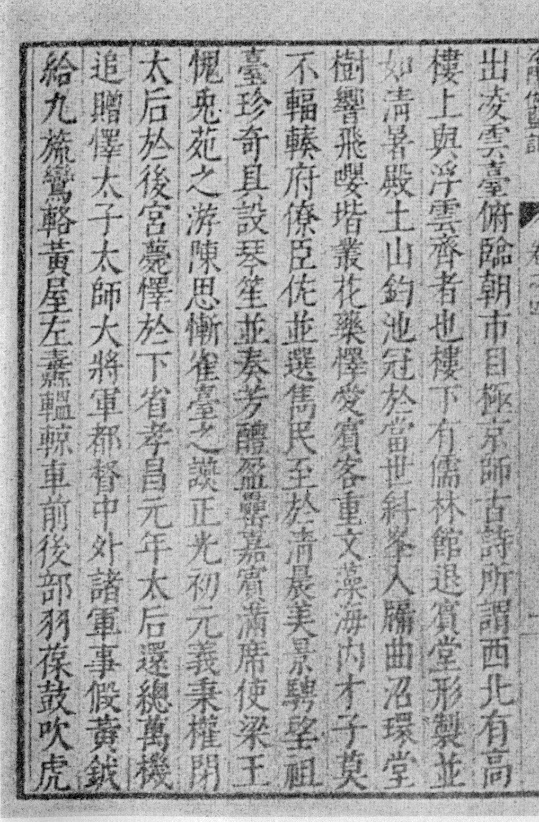 出凌雲臺俯臨朝市目極京師古詩所謂西北有高
樓上與浮雲齊者也樓下有儒林館退賓堂形製並
如淸暑殿土山釣池冠於當世斜峯入牖曲沼環堂
樹響飛嚶堦叢花藥懌愛賓客重文藻海內才子莫
不輻輳府僚臣佐並選雋民至於淸晨美景騁望
臺珍奇具設琴笙並奏芳醴盈罍嘉賓滿席使梁王
愧兎苑之游陳思慚雀臺之讌正光初元義秉權閉
太后於後宮薨懌於下省孝昌元年太后還總萬機
追贈懌太子太師大將軍都督中外諸軍事假黃鉞
給九旒鸞輅黃屋左纛轀輬車前後部羽葆鼓吹虎